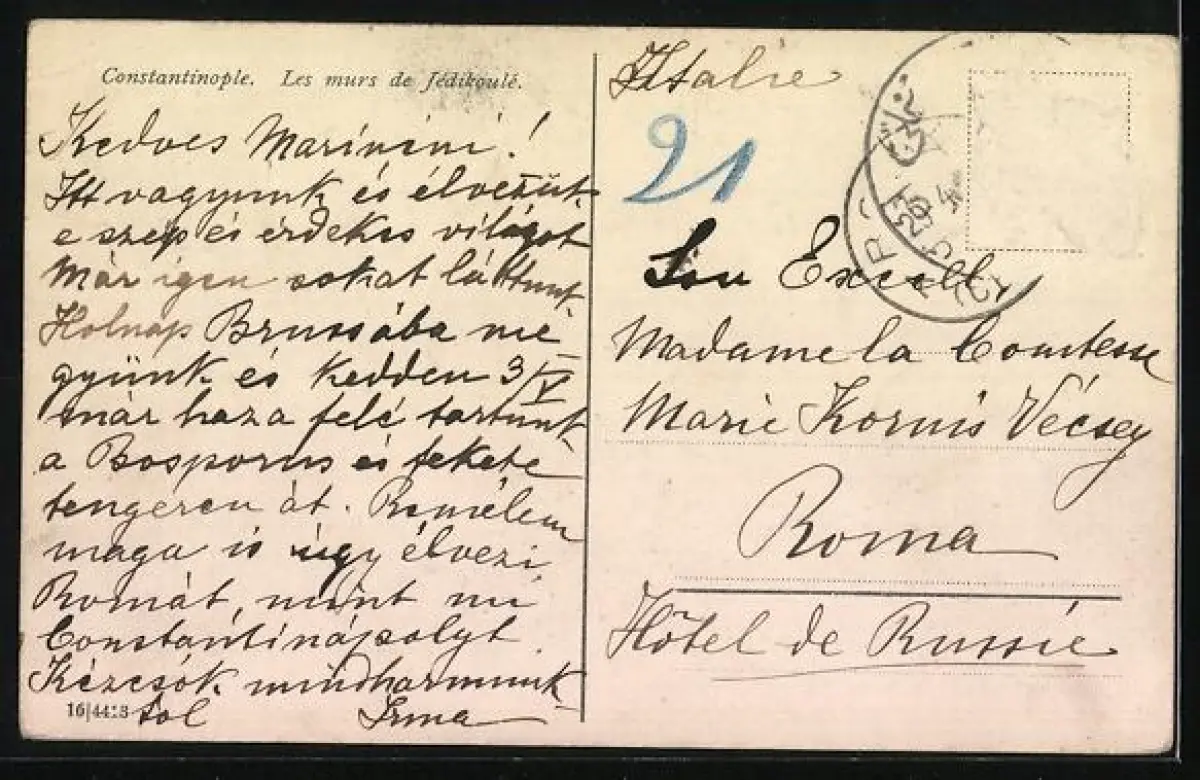 Constantinople. Les murs de Jédikoulé.
Kedves Marinéni!
Itt vagyunk és élvezük
e szép és érdekes világot
Már igen sokat láttunk
Holnap Brussába me
gyünk és kedden 3/V
már haza felé tartunk
a Bosporus és fekete
tengeren át. Remélem
maga is úgy élvezi
Romát, mint mi
Constantinápolyt.
Kézcsók mindharmunk
tol Irma
16|44:3
Italie
21
Son Excell.
Madame la Comtesse
Marie Kornis Vécsey
Roma
Hôtel de Russie